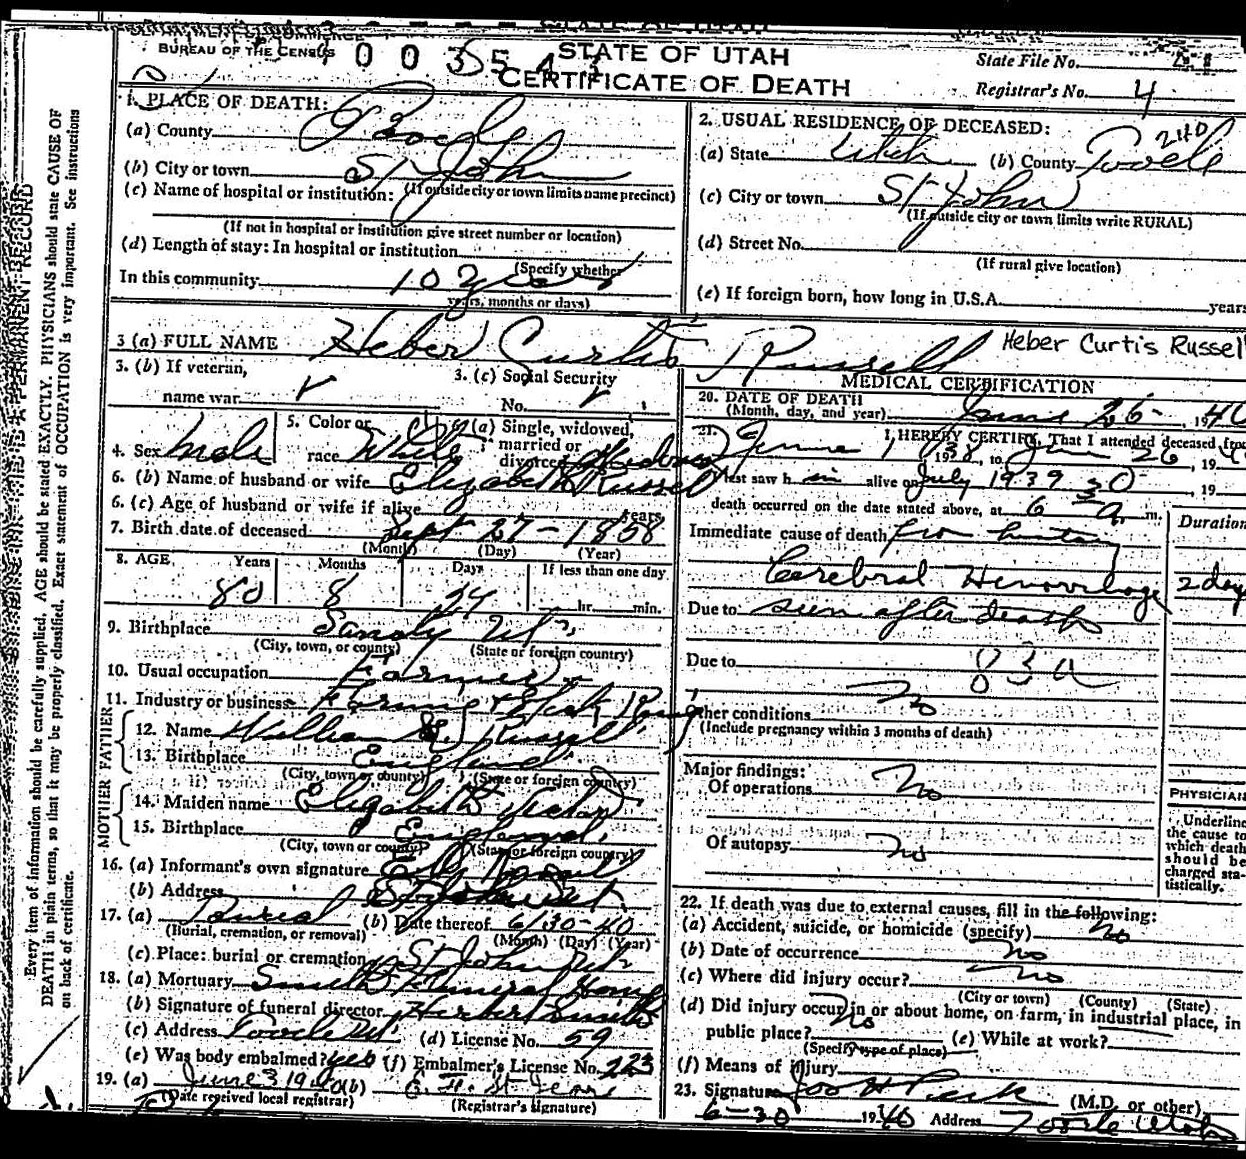 BUREAU OF THE CENSUS
STATE OF UTAH
CERTIFICATE OF DEATH
State File No.
Registrar's No. 4
1. PLACE OF DEATH:
(a) County Tooele
(b) City or town St John
(If outside city or town limits name precinct)
(c) Name of hospital or institution:
(If not in hospital or institution give street number or location)
(d) Length of stay: In hospital or institution
(Specify whether
In this community 10 years
years, months or days)
2. USUAL RESIDENCE OF DECEASED:
240
(a) State Utah (b) County Tooele
(c) City or town St John
(If outside city or town limits write RURAL)
(d) Street No.
(If rural give location)
(e) If foreign born, how long in U.S.A. years
3 (a) FULL NAME Heber Curtis Russell Heber Curtis Russell
3. (b) If veteran,
name war
3. (c) Social Security
No.
4. Sex Male
5. Color or
race White
6 (a) Single, widowed,
married or
divorced Widowed
6. (b) Name of husband or wife Elizabeth Russel
6. (c) Age of husband or wife if alive years
7. Birth date of deceased Sept 27-1858
(Month) (Day) (Year)
8. AGE Years Months Days If less than one day
80 8 24 hr. min.
9. Birthplace Sandy Ut
(City, town, or county) (State or foreign country)
10. Usual occupation Farmer
11. Industry or business Farming & Stock
FATHER
12. Name William Russell
13. Birthplace England
(City, town or county) (State or foreign country)
MOTHER
14. Maiden name Elizabeth
15. Birthplace England
(City, town or county) (State or foreign country)
16. (a) Informant's own signature
(b) Address St John Ut
17. (a) Burial (b) Date thereof 6/30-40
(Burial, cremation, or removal) (Month) (Day) (Year)
(c) Place: burial or cremation St John Ut
18. (a) Mortuary Smith Funeral Home
(b) Signature of funeral director Herbert Smith
(c) Address Tooele Ut (d) License No. 59
(e) Was body embalmed? yes (f) Embalmer's License No. 223
19. (a) June 3 1940 (b)
(Date received local registrar) (Registrar's signature)
MEDICAL CERTIFICATION
20. DATE OF DEATH
(Month, day, and year) June 26-, 1940
21. I HEREBY CERTIFY, That I attended deceased from
June 1 1938, to June 26, 19
I last saw him alive on July 1939 30, 19
death occurred on the date stated above, at 6 a. m.
Duration
Immediate cause of death from history
Cerebral Hemorrhage 2 day
Due to seen after death
Due to 83a
no
Other conditions
(Include pregnancy within 3 months of death)
Major findings:
Of operations no
Of autopsy no
PHYSICIAN
Underline
the cause to
which death
should be
charged sta-
tistically.
22. If death was due to external causes, fill in the following:
(a) Accident, suicide, or homicide (specify) no
(b) Date of occurrence no
(c) Where did injury occur? no
(City or town) (County) (State)
(d) Did injury occur in or about home, on farm, in industrial place, in
public place? no (e) While at work?
(Specify type of place)
(f) Means of injury
23. Signature Jos H Peck (M.D. or other)
6-30 1940 Address Tooele Utah
Every item of information should be carefully supplied. AGE should be stated EXACTLY. PHYSICIANS should state CAUSE OF
DEATH in plain terms, so that it may be properly classified. Exact statement of OCCUPATION is very important. See instructions
on back of certificate.